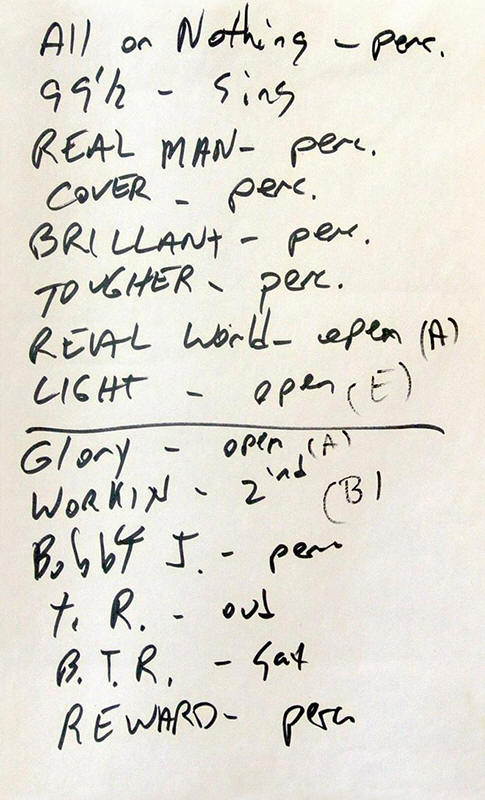 All or Nothing - perc.
99 1/2 - Sing
REAL MAN - perc.
COVER - perc.
BRILLANT - perc.
TOUGHER - perc.
REAL World - open (A)
LIGHT - open (E)
Glory - open (A)
WORKIN - 2ind (B)
Bobby J. - perc
T. R. - out
B.T.R. - Sax
REWARD - perc